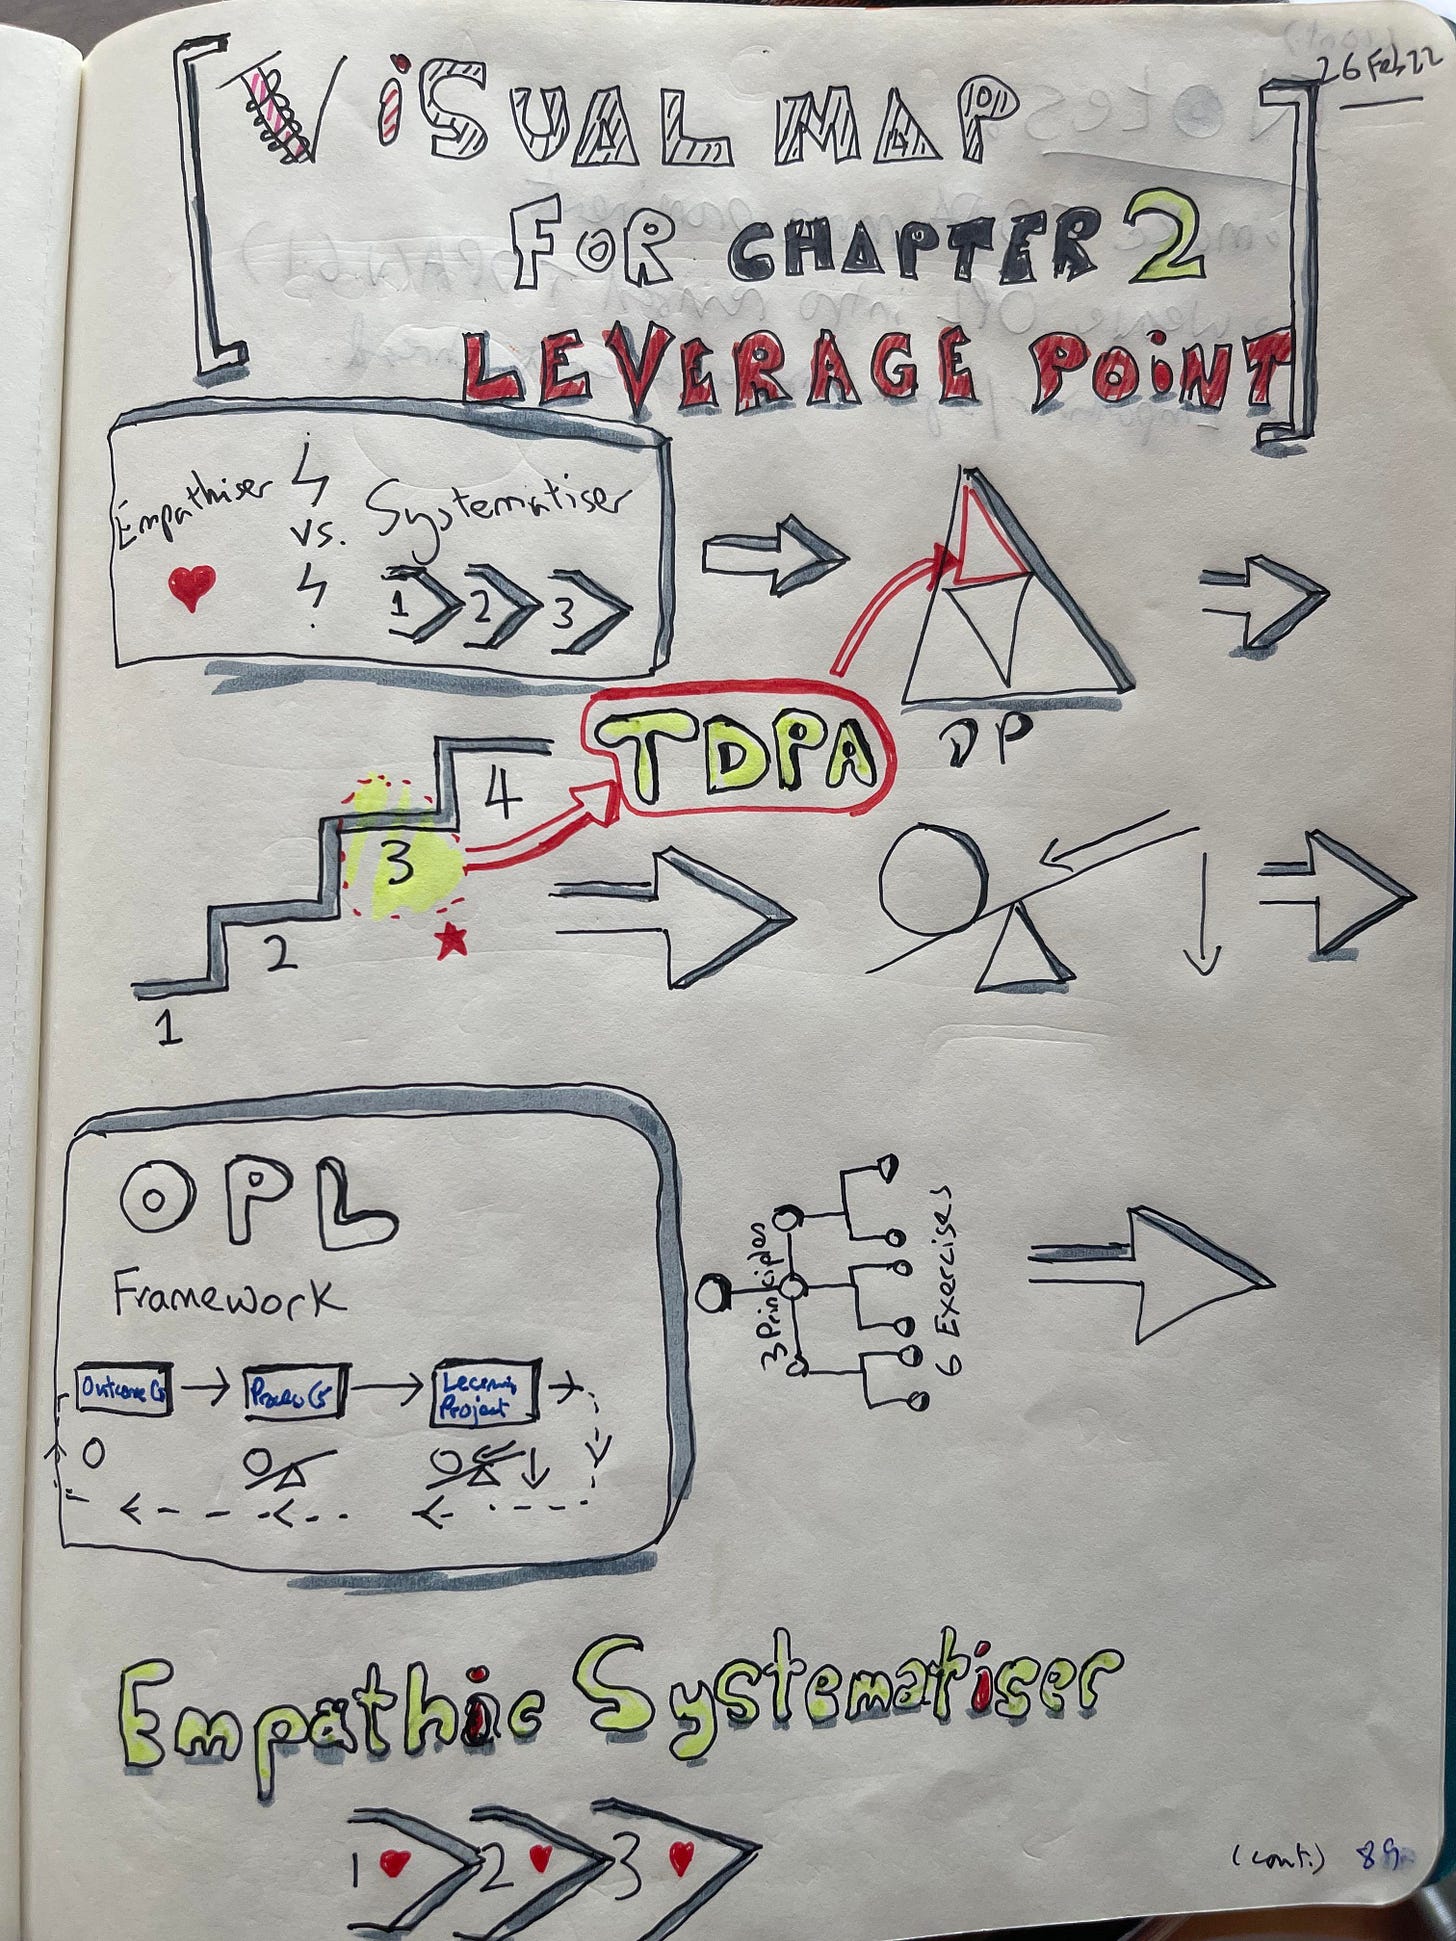 26 Feb 22
VISUAL MAP
FOR CHAPTER 2
LEVERAGE POINT
Empathiser vs. Systematiser
1 2 3
DP
TDPA
4
3
2
1
OPL
Framework
Outcome Process Learning
Project
3 Principles
6 Exercises
Empathic Systematiser
1 2 3
(cont.) 89